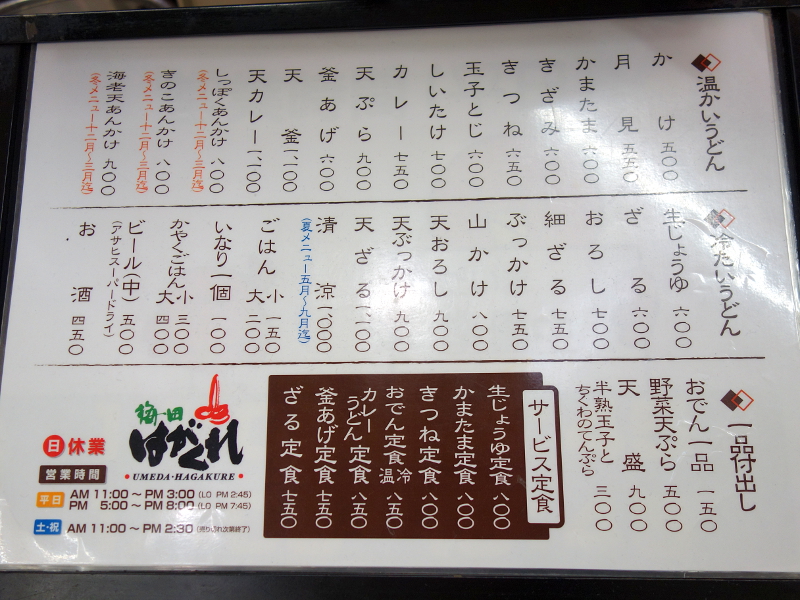 温かいうどん
かけ 五〇〇
月見 五五〇
かまたま 六〇〇
きざみ 六〇〇
きつね 六五〇
玉子とじ 六〇〇
しいたけ 七〇〇
カレー 七五〇
天ぷら 九〇〇
釜あげ 六〇〇
天釜 一、一〇〇
天カレー 一、一〇〇
しっぽくあんかけ 八〇〇
(冬メニュー十二月〜三月迄)
きのこあんかけ 八〇〇
(冬メニュー十二月〜三月迄)
海老天あんかけ 九〇〇
(冬メニュー十二月〜三月迄)
冷たいうどん
生じょうゆ 六〇〇
ざる 六〇〇
おろし 七〇〇
細ざる 七五〇
ぶっかけ 七五〇
山かけ 八〇〇
天おろし 九〇〇
天ぶっかけ 九〇〇
天ざる 一、一〇〇
清涼 一、〇〇〇
(夏メニュー五月〜九月迄)
ごはん 小 一五〇
大 二〇〇
いなり一個 一〇〇
かやくごはん 小 三〇〇
大 四〇〇
ビール(中) 五〇〇
(アサヒスーパードライ)
お酒 四五〇
一品付出し
おでん一品 一五〇
野菜天ぷら 五〇〇
天盛 九〇〇
半熟玉子と
ちくわのてんぷら 三〇〇
サービス定食
生じょうゆ定食 八〇〇
かまたま定食 八〇〇
きつね定食 八〇〇
おでん定食 冷温 八五〇
カレーうどん定食 八五〇
釜あげ定食 七五〇
ざる定食 七五〇
梅田
はがくれ
・UMEDA・HAGAKURE・
日 休業
営業時間
平日 AM 11:00 〜 PM 3:00 (LO PM 2:45)
PM 5:00 〜 PM 8:00 (LO PM 7:45)
土・祝 AM 11:00 〜 PM 2:30 (売り切れ次第終了)